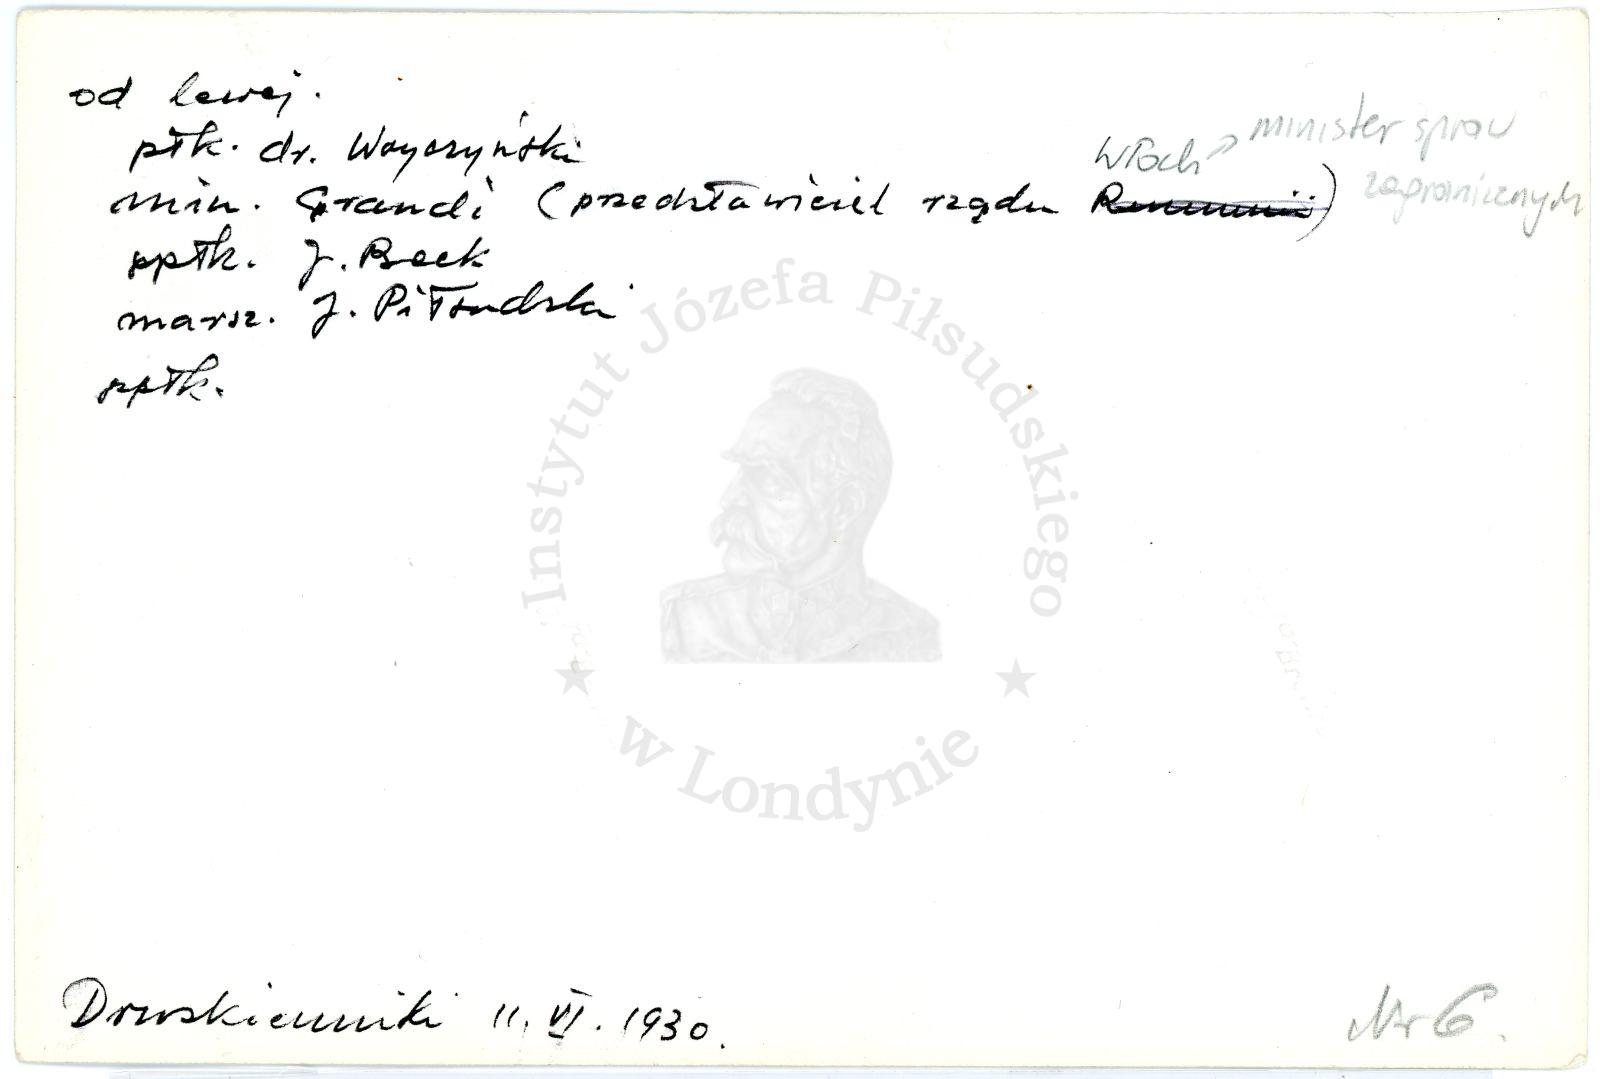 od lewej.
płk. dr. Woyczyński
min. Grandi (przedstawiciel rządu Rumunii)
Włoch → minister spraw
zagranicznych
ppłk. J. Beck
marsz. J. Piłsudski
ppłk.
Instytut Józefa Piłsudskiego
★ w Londynie ★
Druskienniki 11. VI. 1930.
Nr 6.